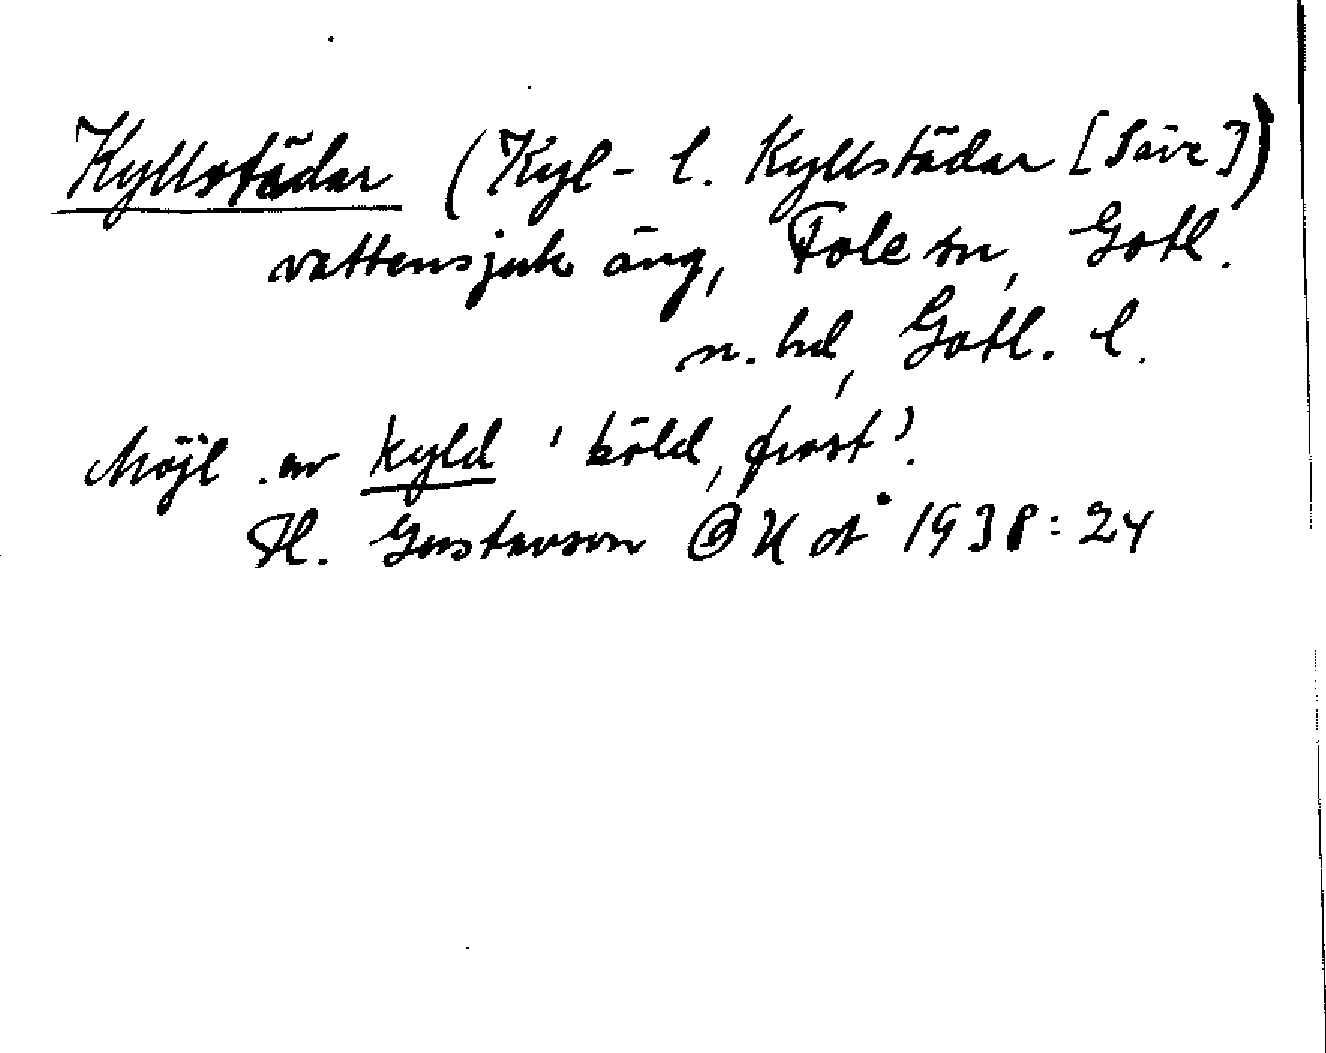 Kyllstädar (Kyl- l. Kyllstädar [Säve])
vattensjuk äng, Fole sn, Gotl.
n. hd, Gotl. l.
Möjl. av kyld 'köld, frost'.
H. Gustavson GUÅ 1938:24